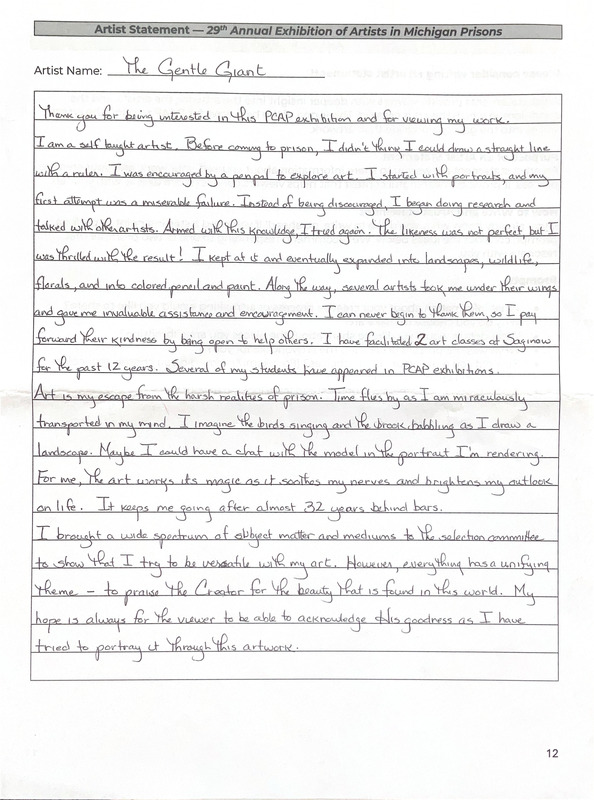 Artist Statement — 29th Annual Exhibition of Artists in Michigan Prisons
Artist Name: The Gentle Giant
Thank you for being interested in this PCAP exhibition and for viewing my work.
I am a self taught artist. Before coming to prison, I didn't think I could draw a straight line
with a ruler. I was encouraged by a penpal to explore art. I started with portraits, and my
first attempt was a miserable failure. Instead of being discouraged, I began doing research and
talked with other artists. Armed with this knowledge, I tried again. The likeness was not perfect, but I
was thrilled with the result! I kept at it and eventually expanded into landscapes, wildlife,
florals, and into colored pencil and paint. Along the way, several artists took me under their wings
and gave me invaluable assistance and encouragement. I can never begin to thank them, so I pay
forward their kindness by being open to help others. I have facilitated 2 art classes at Saginaw
for the past 12 years. Several of my students have appeared in PCAP exhibitions.
Art is my escape from the harsh realities of prison. Time flies by as I am miraculously
transported in my mind. I imagine the birds singing and the brook babbling as I draw a
landscape. Maybe I could have a chat with the model in the portrait I'm rendering.
For me, the art works its magic as it soothes my nerves and brightens my outlook
on life. It keeps me going after almost 32 years behind bars.
I brought a wide spectrum of subject matter and mediums to the selection committee
to show that I try to be versatile with my art. However, everything has a unifying
theme – to praise the Creator for the beauty that is found in this world. My
hope is always for the viewer to be able to acknowledge His goodness as I have
tried to portray it through this artwork.
12